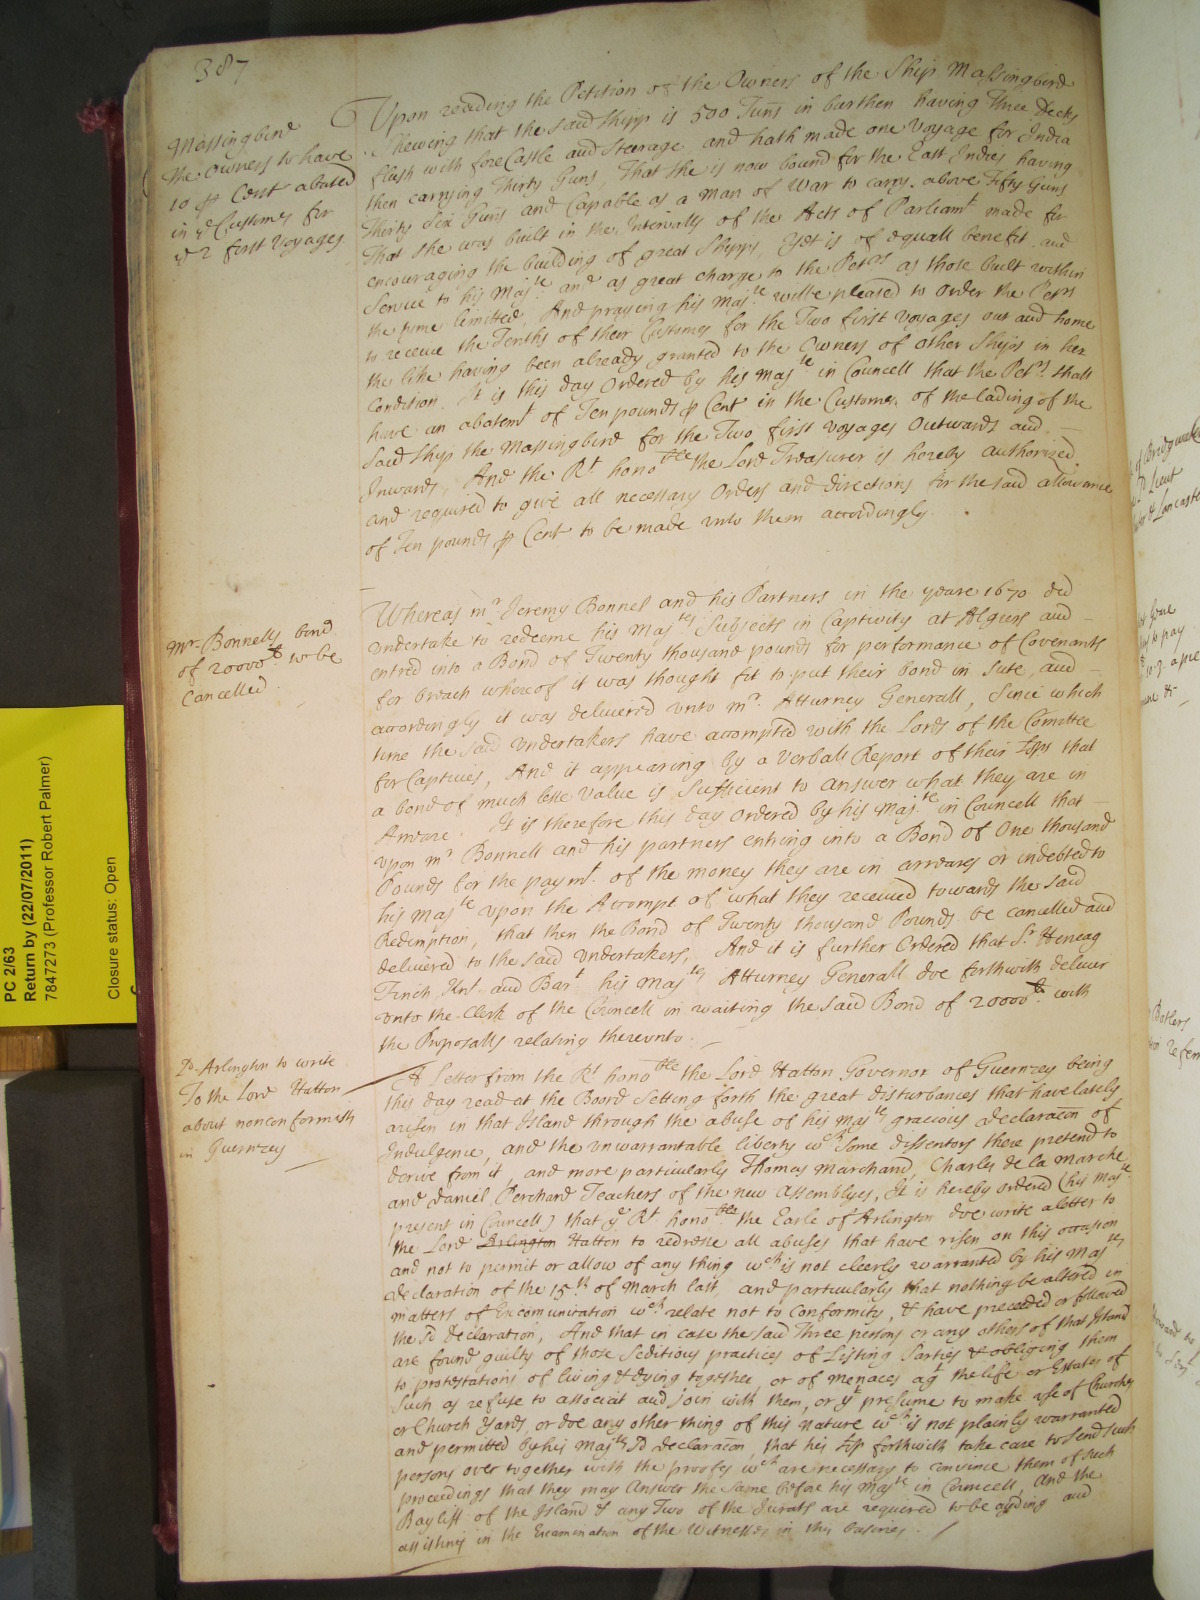 387
Massingbird
the Owners to have
10 p Cent abated
in ye Customes for
ye 2 first Voyages
Upon reading the Petition of the Owners of the Ship Massingbird
Shewing that the said Shipp is 500 Tuns in burthen having Three Decks
flush with foreCastle and Steerage and hath made one Voyage for India
then carrying Thirty Guns, That she is now bound for the East Indies having
Thirty Six Guns and Capable as a Man of War to carry above Fifty Guns
That she was built in the Intervalls of the Acts of Parliamt made for
encouraging the building of great Shipps, Yet is of equall benefit and
Service to his Majtie and as great charge to the Petrs as those built within
the time limitted, And praying his Majtie wilbe pleased to Order the Petrs
to receive the Tenths of their Customes for the Two first Voyages out and home
the like having been already granted to the Owners of other Ships in her
Condition. It is this day Ordered by his Majte in Councell that the Petrs shall
have an abatemt of Ten pounds p Cent in the Customes of the lading of the
said Ship the Massingbird for the Two first Voyages Outwards and
Inwards, And the Rt honoble the Lord Treasurer is hereby authorized
and required to give all necessary Orders and directions for the said allowance
of Ten pounds p Cent to be made unto them accordingly.
Mr. Bonnells bond
of 20000 li to be
Cancelled
Whereas mr Jeremy Bonnel and his Partners in the yeare 1670 did
undertake to redeeme his Majtes Subjects in Captivity at Algiers and
entred into a Bond of Twenty thousand pounds for performance of Covenants
for breach whereof it was thought fit to put their bond in sute, and
accordingly it was delivered unto mr. Atturney Generall, Since which
time the said Undertakers have accompted with the Lords of the Comittee
for Captives, And it appearing by a verball Report of their Lops that
a bond of much lesse value is sufficient to answer what they are in
Arreare. It is therefore this day Ordered by his Majte in Councell that
upon mr Bonnell and his partners entring into a Bond of One thousand
Pounds for the paymt. of the money they are in arreares or indebted to
his Majte upon the Accompt of what they received towards the said
Redemption, that then the Bond of Twenty thousand Pounds be cancelled and
delivered to the said Undertakers, And it is further Ordered that Sr Heneag
Finch Knt and Bart his Majtes Atturney Generall doe forthwith deliver
unto the Clerk of the Councell in waiting the said Bond of 20000 li. with
the Proposalls relating thereunto.
Ld Arlington to write
To the Lord Hatton
about nonconformists
in Guernzey
A Letter from the Rt honoble the Lord Hatton Governor of Guernzey being
this day read at the Board Setting forth the great disturbances that have lately
arisen in that Island through the abuse of his Majtes gracious declaracon of
Indulgence, and the unwarrantable liberty wch some dissentors there pretend to
derive from it, and more particularly Thomas Marchand, Charles de la Marche
and Daniel Perchard Teachers of the new Assemblyes, It is hereby ordered (his Majte
present in Councell) that ye Rt honoble the Earle of Arlington doe write a letter to
the Lord Arlington Hatton to redresse all abuses that have risen on this occasion
and not to permit or allow of any thing wch is not cleerly warranted by his Majtes
declaration of the 15th of March last, and particularly that nothing be altered in
matters of Excomunication wch relate not to Conformity, & have preceeded or followed
the sd Declaration, And that in case the said Three persons or any others of that Island
are found guilty of those Seditious practices of Listing Parties & obliging them
to protestations of living & dying together, or of menaces agt the life or Estates of
such as refuse to associat and join with them, or yt presume to make use of Churches
or Church Yards, or doe any other thing of this nature wch is not plainly warranted
and permitted by his Majtes sd declaracon, that his Lop forthwith take care to send such
persons over together with the proofes wch are necessary to convince them of such
proceedings that they may answer the same before his Majte in Councell, And the
Bayliff of the Island & any Two of the Jurats are required to be ayding and
assisting in the Examination of the Witnesses in this
PC 2/63
Return by (22/07/2011)
7847273 (Professor Robert Palmer)
Closure status: Open